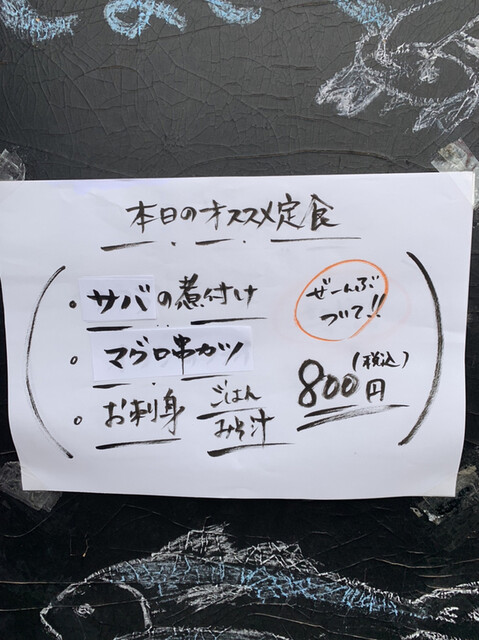 本日のオススメ定食
・サバの煮付け
・マグロ串カツ
・お刺身
ごはん
みそ汁
ぜーんぶ
ついて!!
800円(税込)